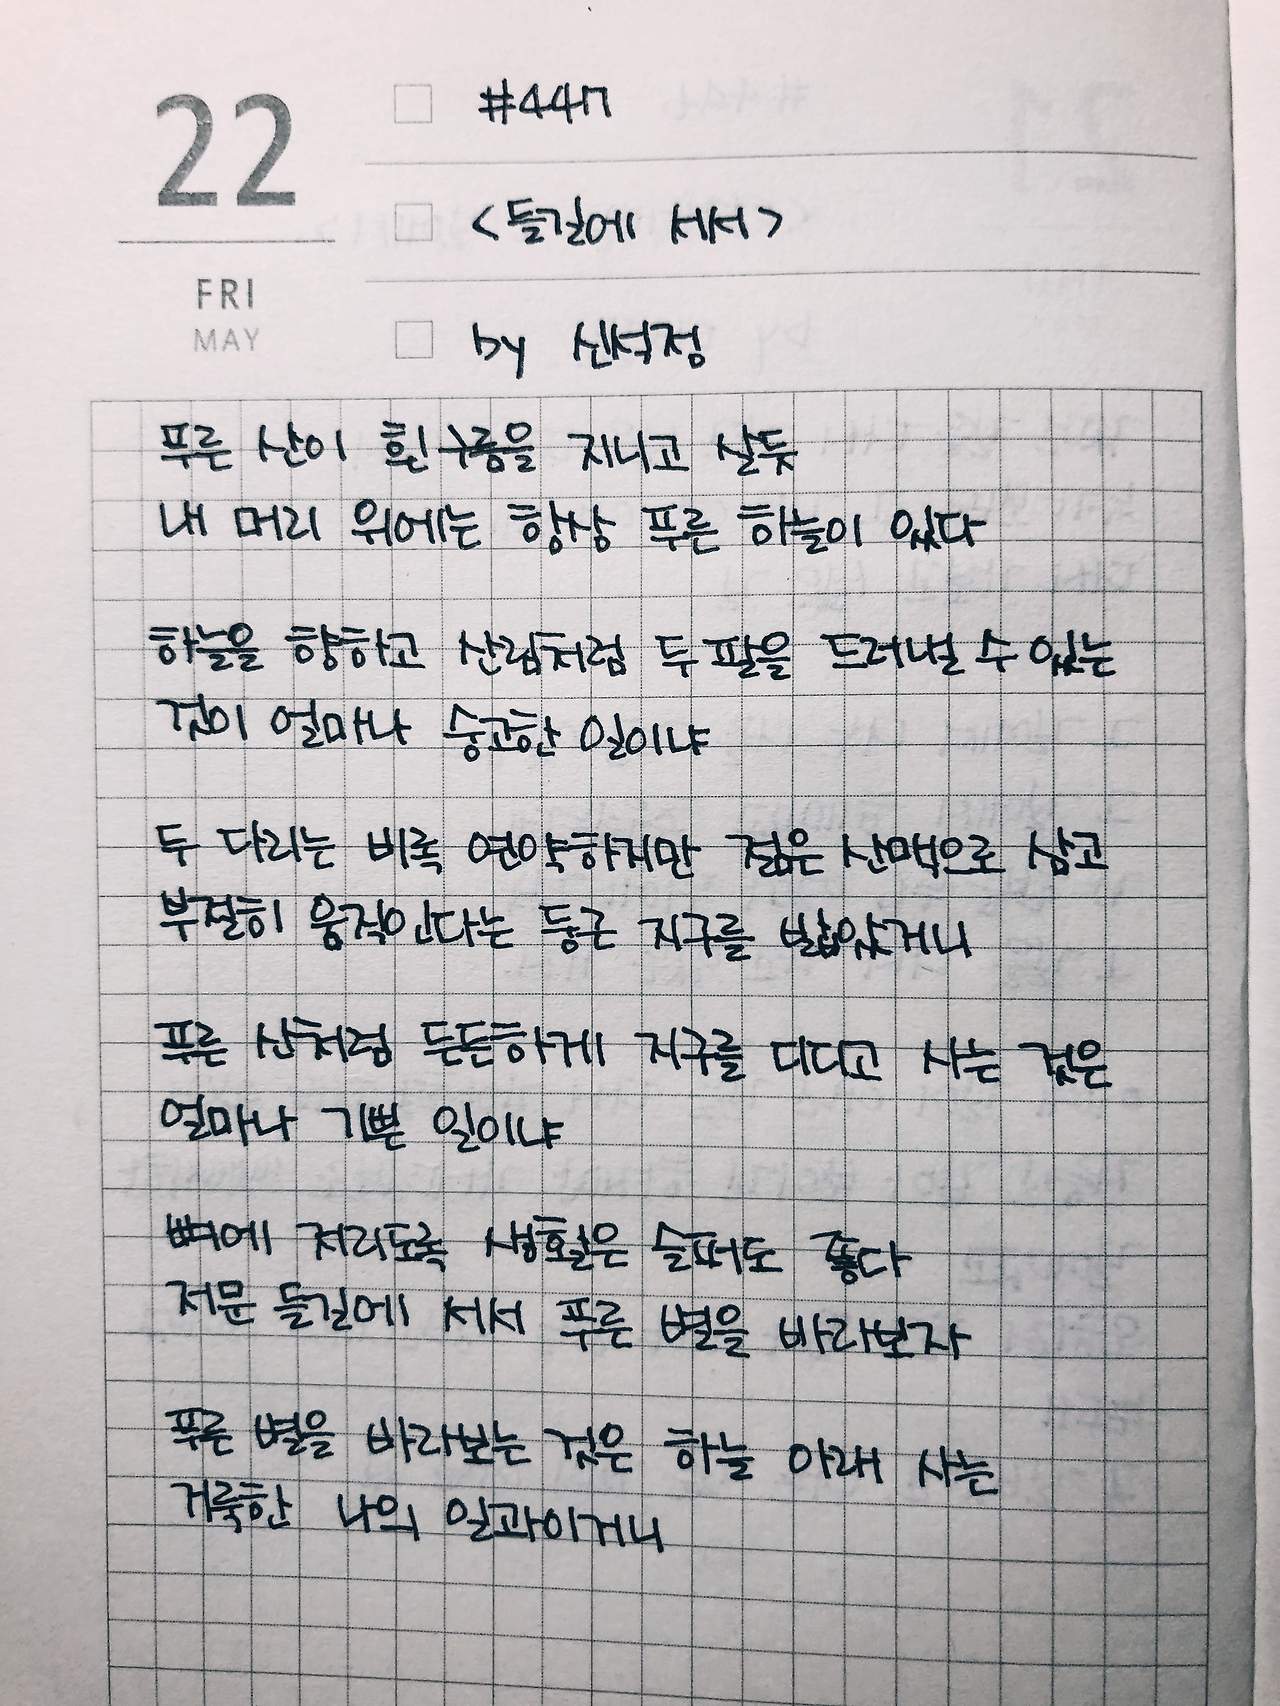 22
FRI
MAY
#447
<들길에 서서>
by 신석정
푸른 산이 흰구름을 지니고 살듯
내 머리 위에는 항상 푸른 하늘이 있다
하늘을 향하고 산림처럼 두팔을 드러낼 수 있는
것이 얼마나 숭고한 일이냐
두 다리는 비록 연약하지만 젊은 산맥으로 삼고
부절히 움직인다는 둥근 지구를 밟았거니
푸른 산처럼 든든하게 지구를 디디고 사는 것은
얼마나 기쁜 일이냐
뼈에 저리도록 생활은 슬퍼도 좋다
저문 들길에 서서 푸른 별을 바라보자
푸른 별을 바라보는 것은 하늘 아래 사는
거룩한 나의 일과이거니